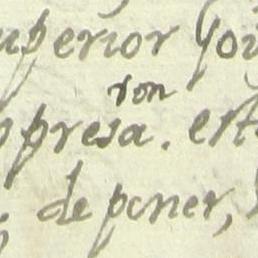 uperior Gov
ron
presa. est
de poner,